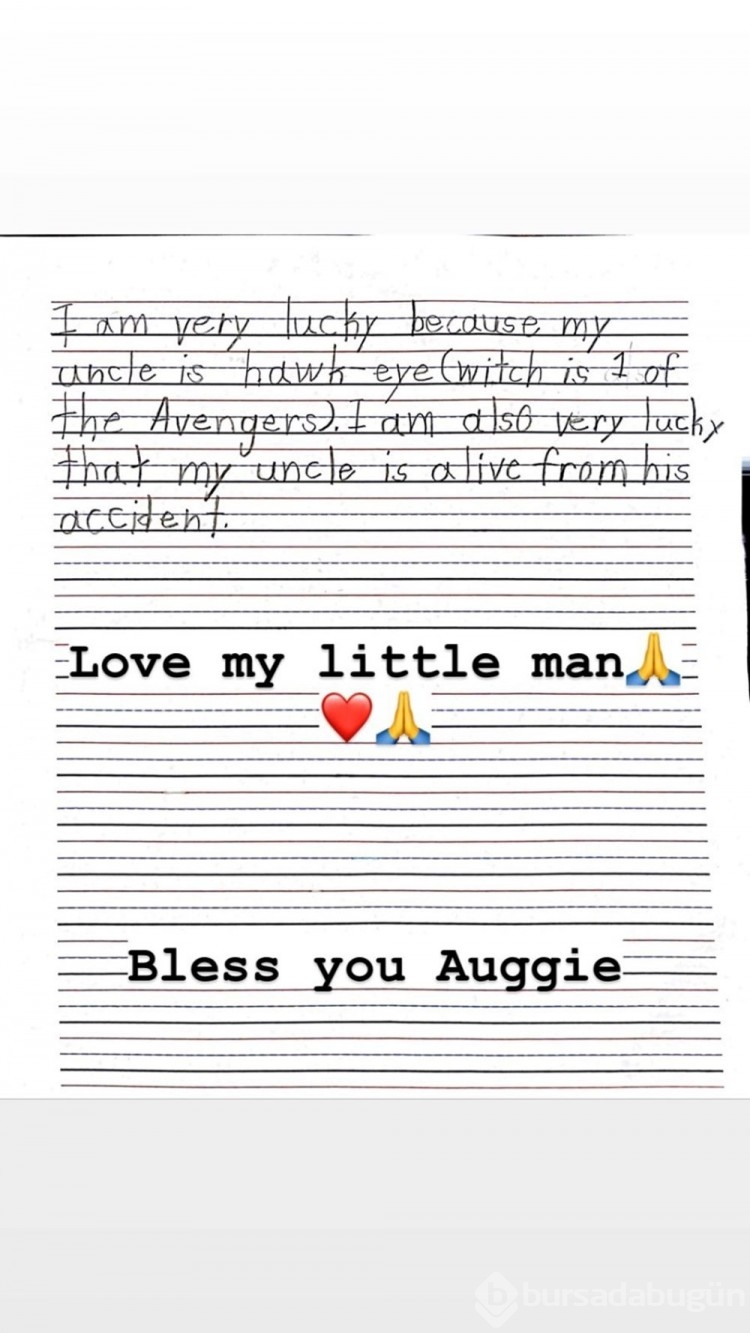 I am very lucky because my
uncle is hawk-eye(witch is 1 of
the Avengers). I am also very lucky
that my uncle is alive from his
accident.
Love my little man🙏
❤️🙏
Bless you Auggie
bursadabugün